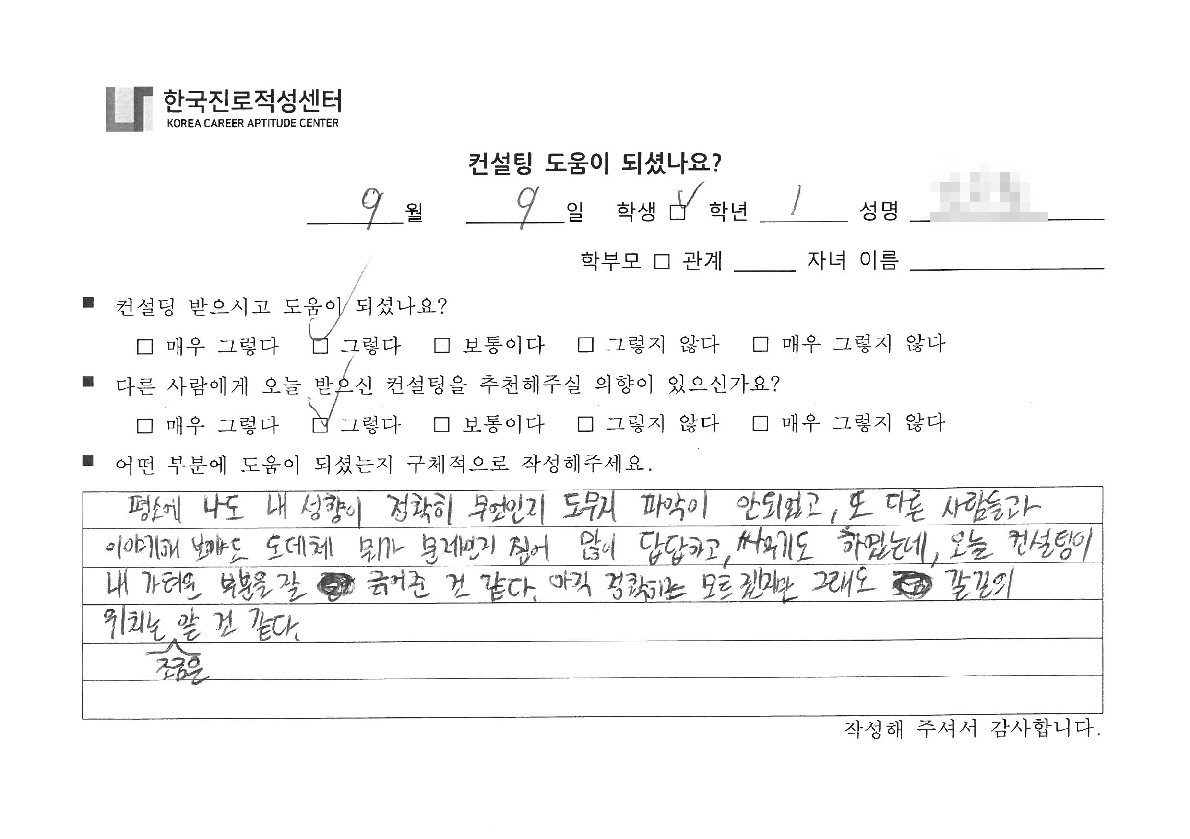 한국진로적성센터
KOREA CAREER APTITUDE CENTER
컨설팅 도움이 되셨나요?
9월 9일 학생 □ 학년 1 성명
학부모 □ 관계 자녀 이름
■ 컨설팅 받으시고 도움이 되셨나요?
□ 매우 그렇다 □ 그렇다 □ 보통이다 □ 그렇지 않다 □ 매우 그렇지 않다
■ 다른 사람에게 오늘 받으신 컨설팅을 추천해주실 의향이 있으신가요?
□ 매우 그렇다 □ 그렇다 □ 보통이다 □ 그렇지 않다 □ 매우 그렇지 않다
■ 어떤 부분에 도움이 되셨는지 구체적으로 작성해주세요.
평소에 나도 내 성향이 정확히 무엇인지 도무지 파악이 안되었고, 또 다른 사람들과
이야기해 보아도 도데체 뭐가 문제인지 많이 답답하고, 싸우기도 하였는데, 오늘 컨설팅이
내 가려운 부분을 잘 긁어준 건 같다. 아직 정확히는 모르겠지만 그래도 갈길의
위치는 조금은 알 건 같다.
작성해 주셔서 감사합니다.